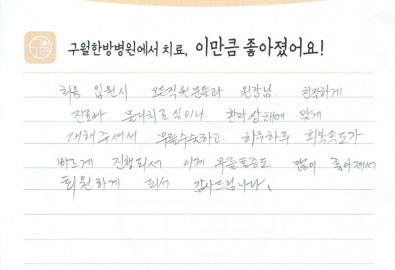 구월한방병원에서 치료, 이만큼 좋아졌어요!
처음 입원시 모든직원분들과 원장님. 친절하게
진료나 물리치료실이나. 환자상태에 맞게
대해주셔서 무릎수술하고. 하루하루 회복속도가
빠르게 진행되서 이제 무릎통증도 많이 좋아져서
퇴원하게 되서 감사드립니다.